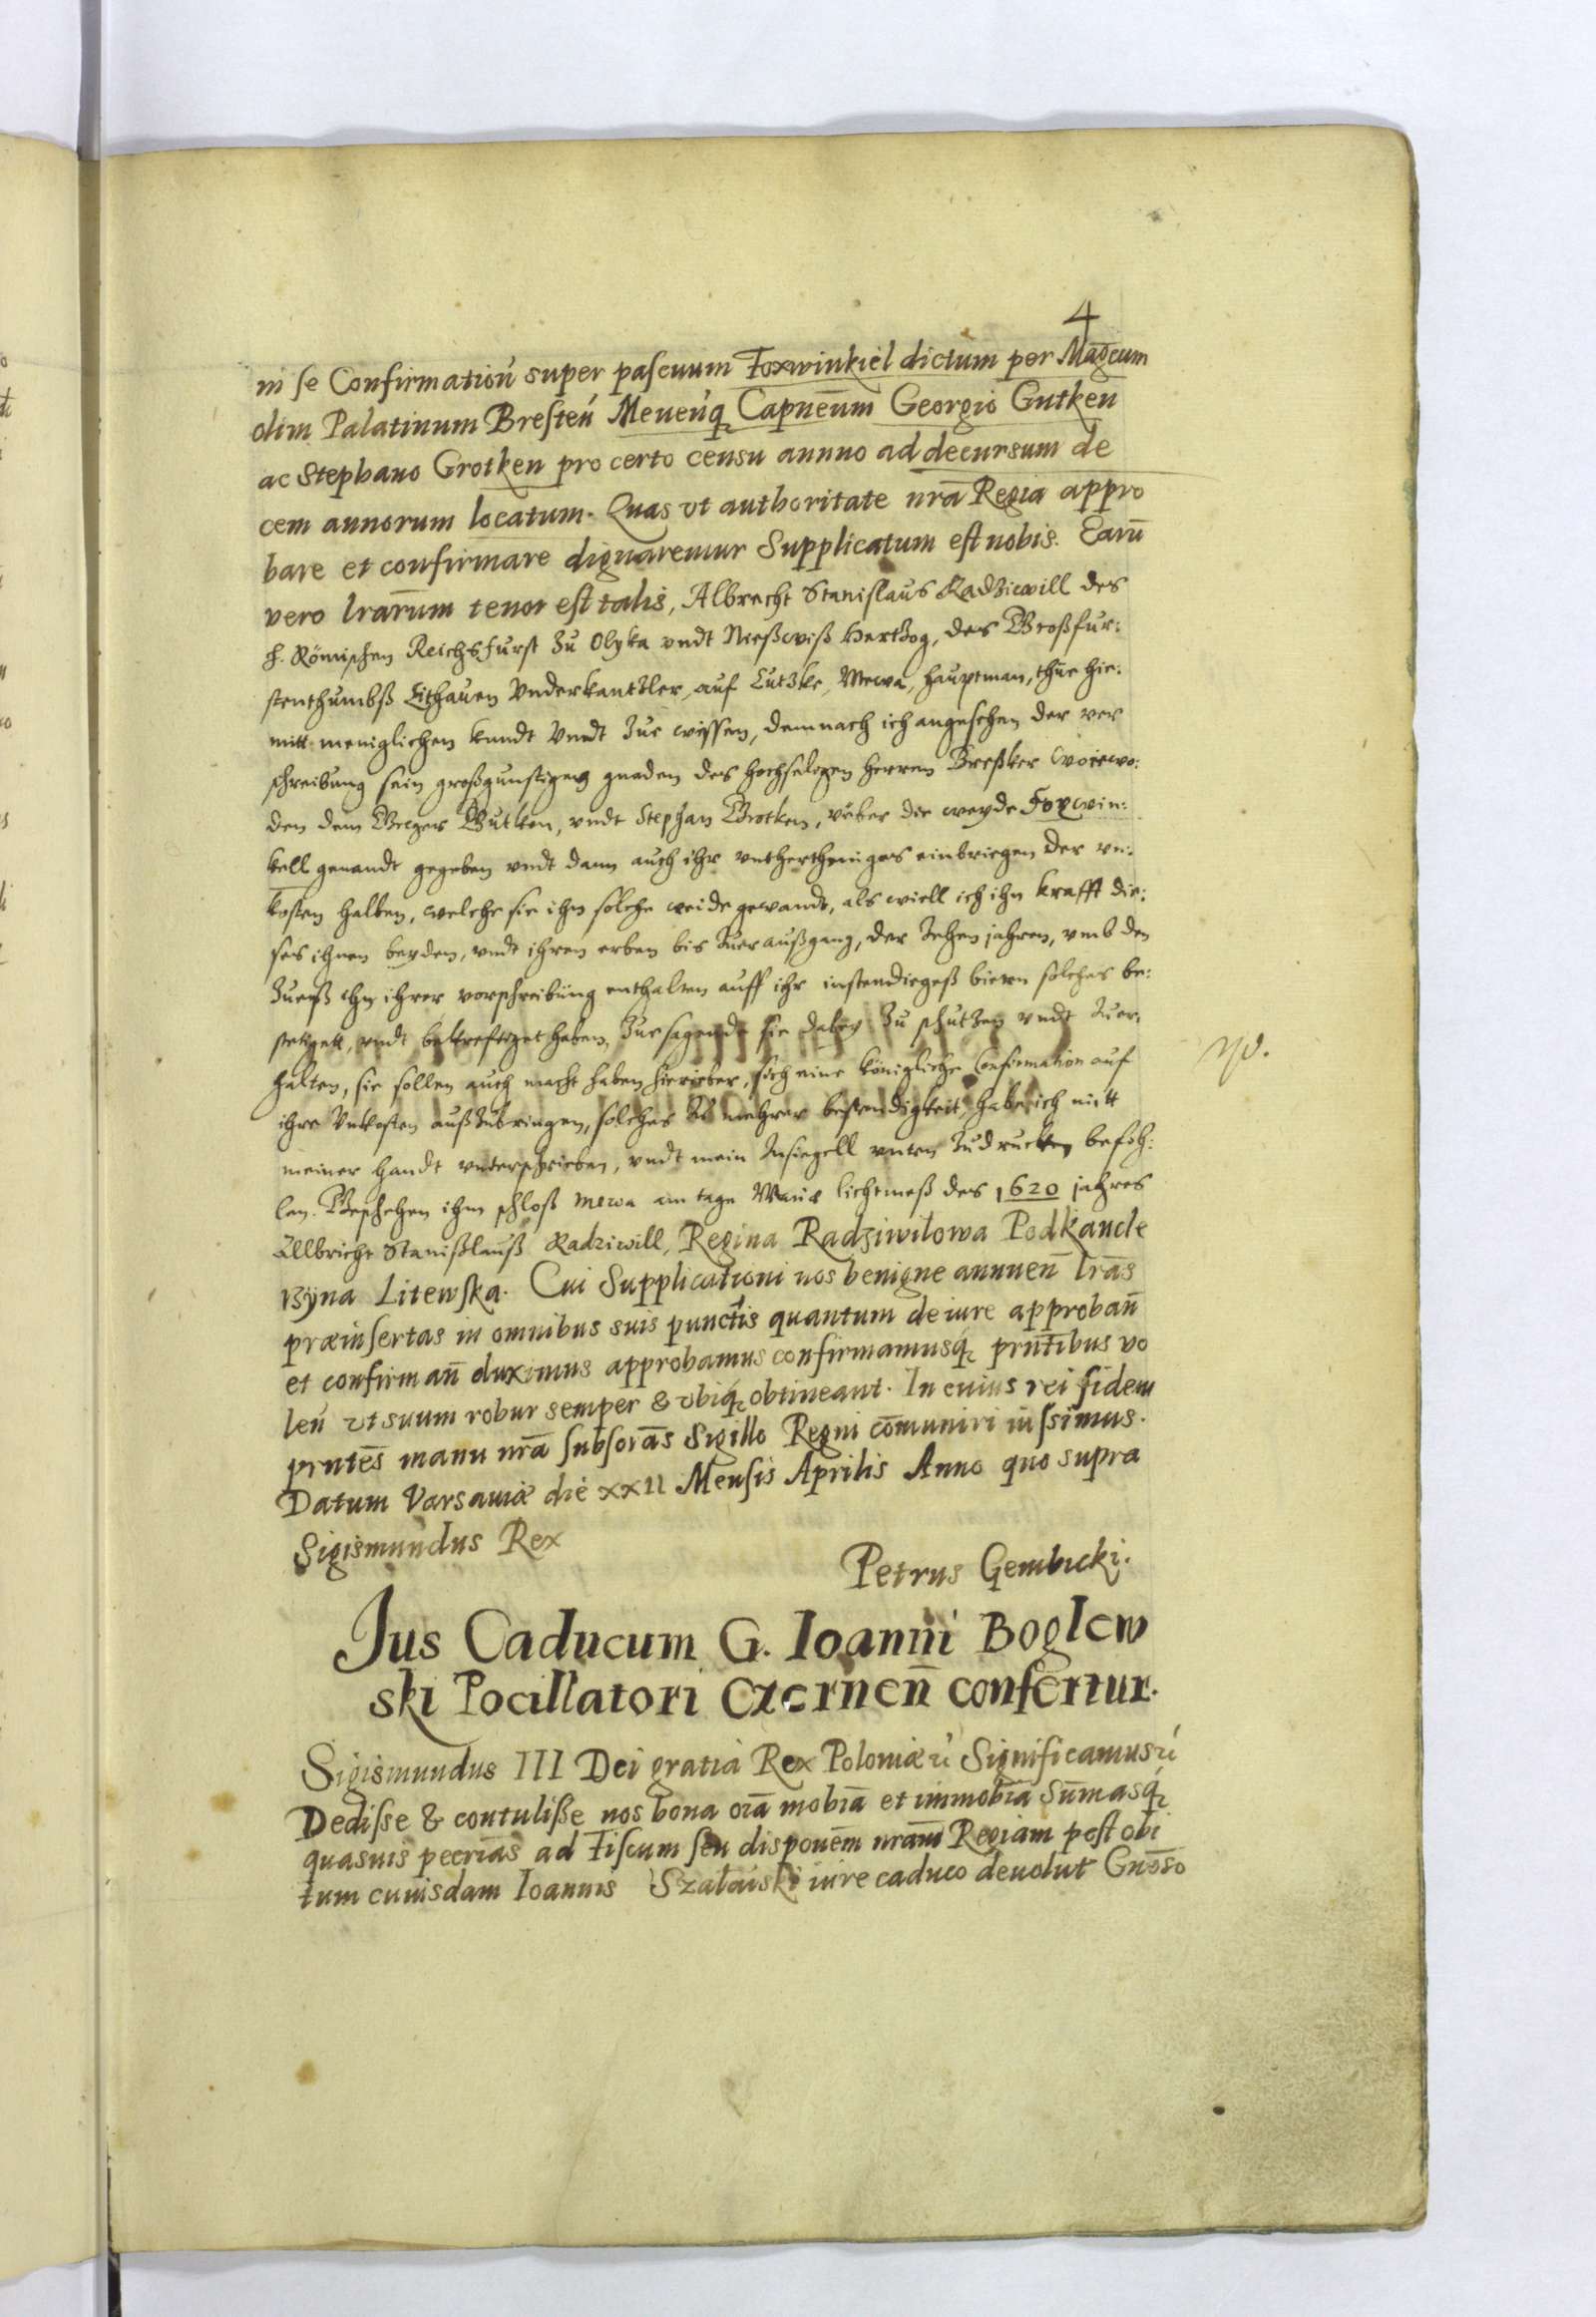 4
ni se Confirmationú super pascuum Foxwinkiel dictum per Magcum
olim Palatinum Bresteń Meueńq Capneum Georgio Gutken
ac Stephano Grotken pro certo censu annuo ad decursum de
cem annorum locatum. Quas ut authoritate nrā Regia appro
bare et confirmare dignaremur Supplicatum est nobis. Earū
vero lrarum tenor est talis, Albrecht Stanislaus Radziewill des
h. Römischen Reichs furst zu Olyka undt Nießwiß Hertzog, des Großfur:
stenthumbß Litthauen Underkantzler, auf Lutzke, Mewa, hauptman, thue hie:
mitt meniglichen kundt undt zue wissen, demnach ich angesehen der ver
schreibung sein großgunstigen gnaden des hochseligen herren Breßker woiewo:
den dem Gurgen Gutken, undt Stephan Grotken, uber die weyde Foxwin:
kell genandt gegeben undt dann auch ihr untertheniges einbringen der un:
kosten halben, welche sie ihn solche weide gewandt, als will ich ihn krafft die:
ses ihnen beyden, undt ihren erben bis zuer außgang, der zehen jahren, umb den
Zinß ihn ihrer vorschreibung enthalten auff ihr instendiegeß bieten solches be:
stetiget, undt bekrefftiget haben, zue sagende sie dabey zu schutzen undt zuer:
halten, sie sollen auch macht haben hierüber, sich eine königliche Confirmation auf
ihre Unkosten auß zubringen, solches zu mehrer bestendigkeit habe ich mitt
meiner handt underschrieben, undt mein Insiegell unten zudrucken befoh:
len. Geschehen ihm schloß Mewa am tage Mariæ lichtmeß des 1620 jahres
Allbricht Stanißlauß Radziwill, Regina Radziwilowa Podkancle
rzyna Litewska. Cui Supplicationi nos benigne annuen̄ lrās
præinsertas in omnibus suis punctis quantum de iure approban̄
et confirman̄ duximus approbamus confirmamusq́ prntibus vo
leń ut suum robur semper & ubiq́ obtineant. In cuius rei fidem
prntēs manu nrā subscrās Sigillo Regni com̄uniri iussimus.
Datum Varsaviæ die XXII Mensis Aprilis Anno quo supra
Sigismundus Rex
Petrus Gembicki.
Jus Caducum G. Ioanni Boglew
ski Pocillatori Czernen̄ confertur.
Sigismundus III Dei gratia Rex Poloniæ Significamus
Dedisse & contulisse nos bona oīa mobīa et immobīa Sum̄asq́
quasuis peccrias ad Fiscum seu disponem nram Regiam post obi
tum cuiusdam Ioannis Szalaiski iure caduco deuolut Gnoso